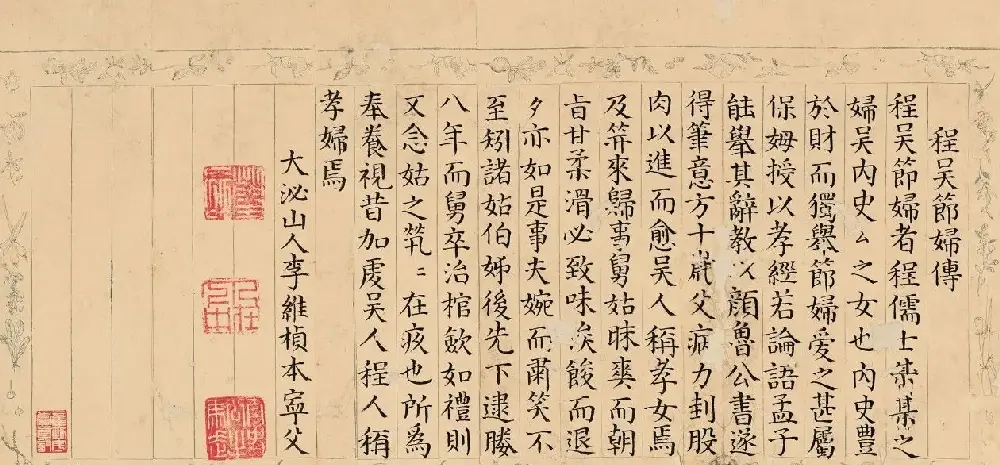 程吳節婦傳
程吳節婦者程儒士某某之
婦吳內史厶之女也內史豐
於財而獨舉節婦愛之甚屬
保姆授以孝經若論語孟子
能舉其辭教以顏魯公書遂
得筆意方十歲父病力刲股
肉以進而愈吳人稱孝女焉
及筓來歸事舅姑昧爽而朝
旨甘柔滑必致味俟餕而退
夕亦如是事夫婉而肅笑不
至矧諸姑伯姊後先下逮媵
八年而舅卒治棺歛如禮則
又念姑之煢〻在疚也所為
奉養視昔加虔吳人程人稱
孝婦焉
大泌山人李維楨本寧父